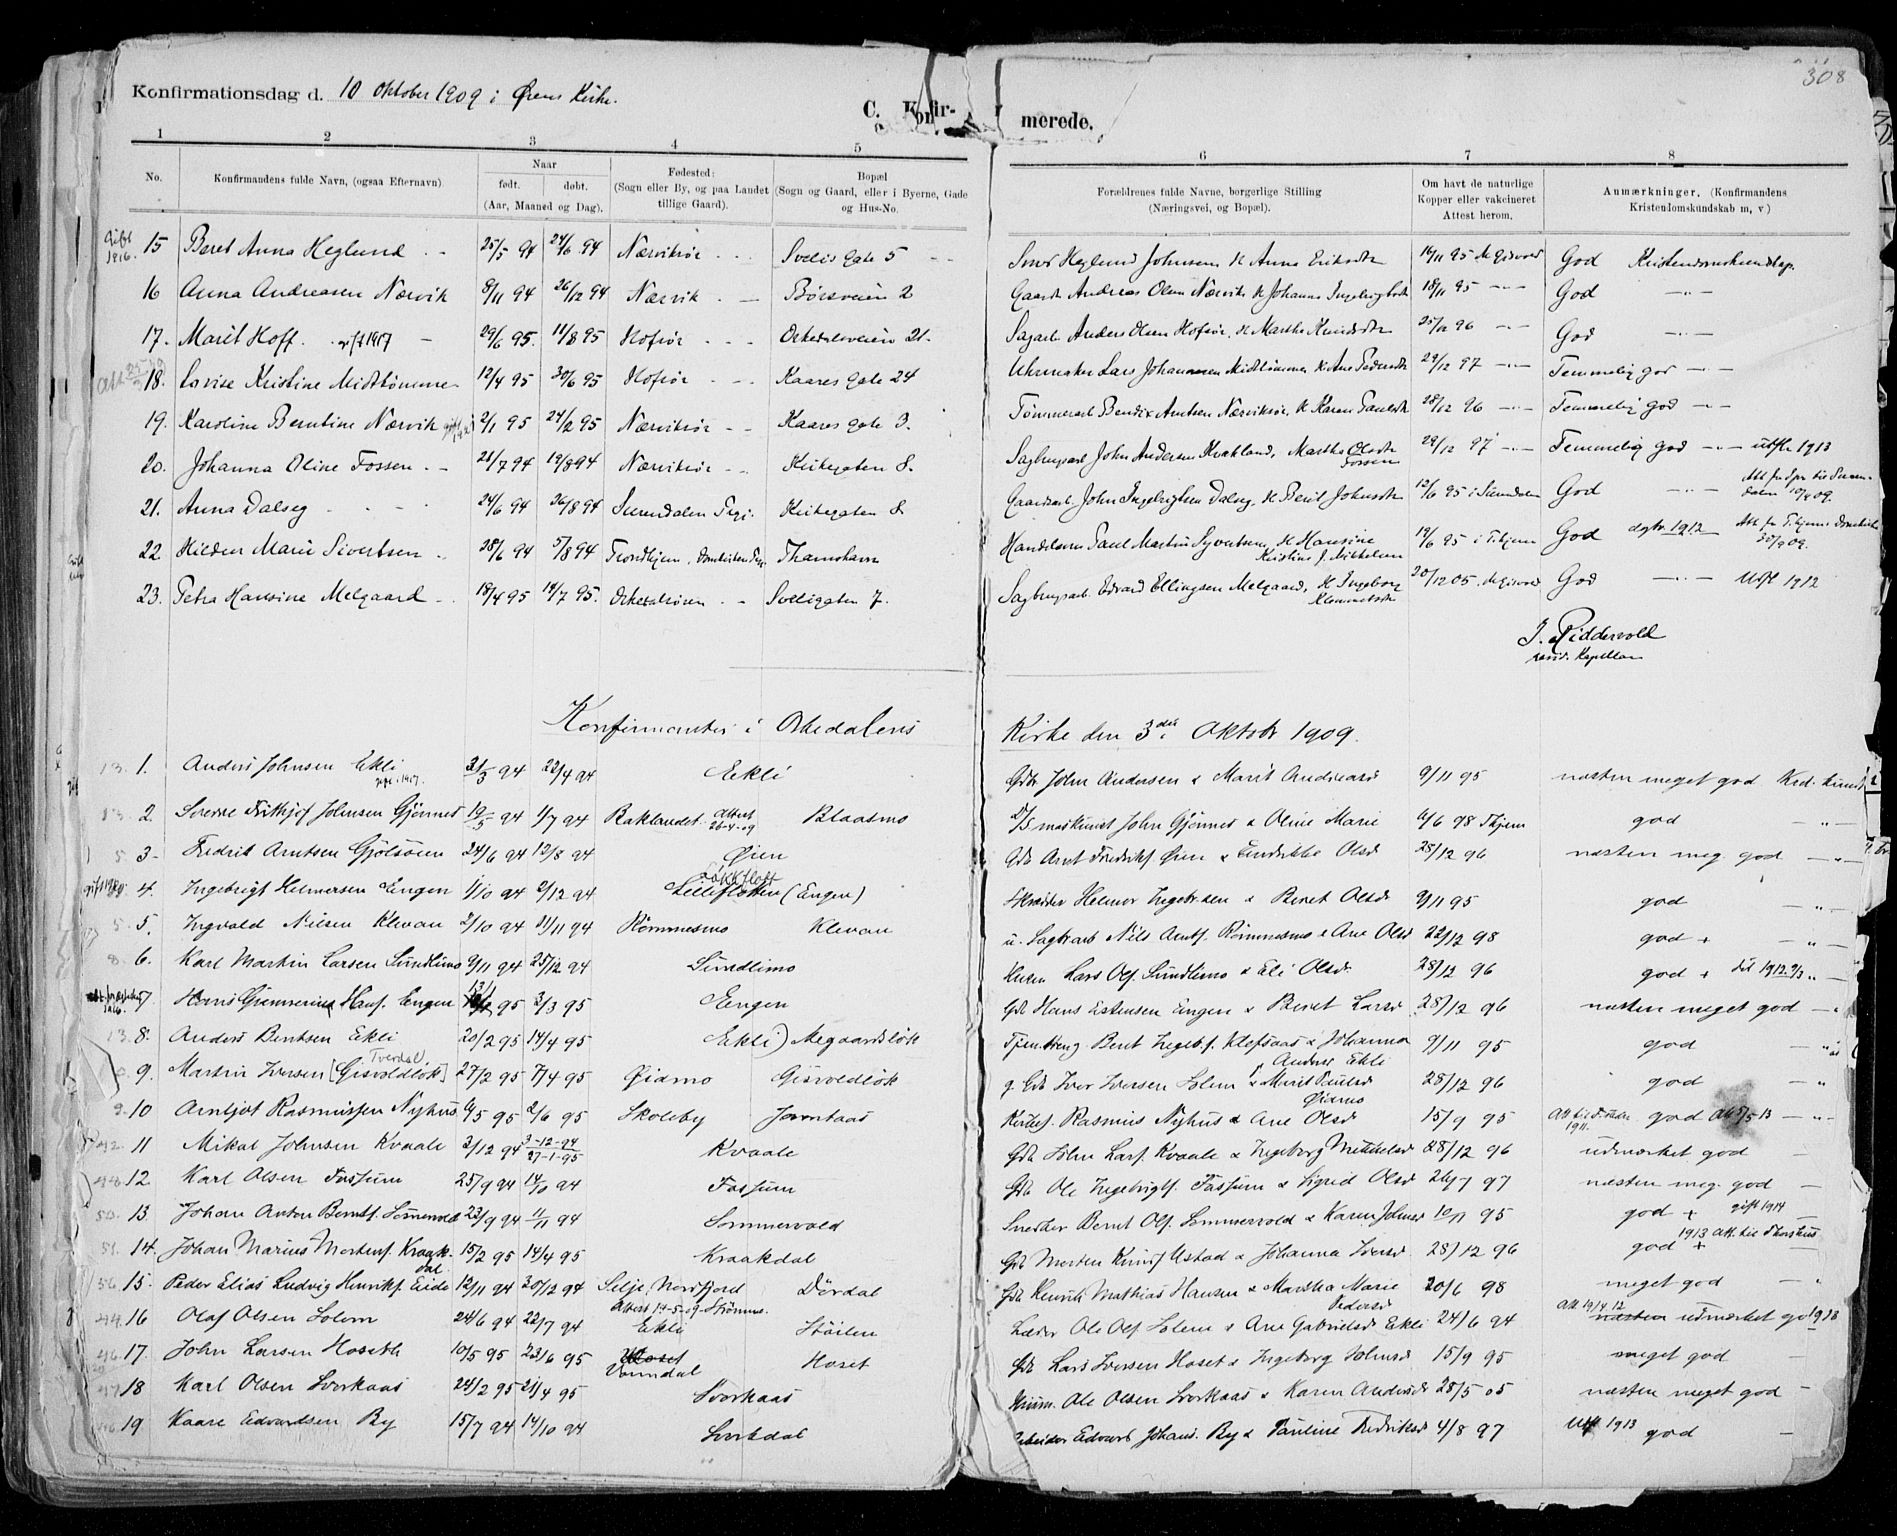 308
Konfirmationsdag d. 10 Oktober 1909 i Ørens Kirke.
C. Konfir- merede.
1 2 3 4 5 6 7 8
No. Konfirmandens fulde Navn, (ogsaa Efternavn) Naar født. døbt. (Aar, Maaned og Dag). Fødested: (Sogn eller By, og paa Landet tillige Gaard). Bopæl (Sogn og Gaard, eller i Byerne, Gade og Hus-No. Forældrenes fulde Navne, borgerlige Stilling (Næringsvei, og Bopæl). Om havt de naturlige Kopper eller vakcineret Attest herom. Anmærkninger. (Konfirmandens Kristendomskundskab m, v.)
Gift 1916. 15 Beret Anna Heglund 25/5 94 24/6 94 Nærviksør Svelis Gate 5 Smed Heglund Johnsen H Anna Eriksdtr 16/11 95 God Kristendomskundskap.
16 Anna Andreasen Nærvik 8/11 94 26/12 94 Nærvik Børsveien 2 Gaardb Andreas Olsen Nærvik H Johanna Ingebrigtsdtr 18/11 95 God
17. Marit Hoff. gift 1917 29/6 95. 11/8 95 Hofsør Orkedalsveien 21. Sagarb Anders Olsen Hofsør, H Martha Knudsdtr 25/12 96 God
18. Lovise Kristine Midtlømme 12/4 95 30/6 95 Hofsør Kaares gate 24 Uhrmaker Lars Johannesen Midtlømme H Ane Pedersdtr 29/12 97 Temmelig god
19. Karoline Berntine Nærvik 2/1 95 24/2 95 Nærviksør Kaares gate 3. Tømmerarb Bendix Arntsen Nærviksør, H Karen Paulsdtr 28/12 96 Temmelig god
20. Johanna Oline Fossen 21/7 94 19/8 94 Nærviksør Kirkegaten 8. Sagbrugsarb John Andersen Kvakland, Martha Olsdtr Fossen 29/12 97 Temmelig god utfl. 1913
21. Anna Dalseg 24/6 94 26/8 94 Surendalen Kirkegaten 8 Gaardarb. John Ingebrigtsen Dalseg, H Berit Johnsdtr 12/6 95 i Surendalen God
22. Hilden Marie Sivertsen 28/6 94 5/8 94 Trondhjem, Thamshavn Handelsm Paul Martin Syvertsen, H Hansine Kristine J. Mikkelsen 19/6 95 i Thjem God 1912
23. Petra Hansine Melgaard 18/4 95 14/7 95. Orkedalsøren Sveligaten 7. Sagbrugsarb Edvard Ellingsen Melgaard, H Ingeborg Klemmetsdtr 20/12 05. God Utfl 1912
J. Riddervold
resid. Kapellan
Konfirmanter i Orkedalens Kirke den 3die Oktobr 1909.
1. Anders Johnsen Ekli gift 1917. 31/3 94 22/4 94 Eekli Gdb John Andersen & Marit Andreasd 9/11 95 næsten meget god Krd. kundsk
2. Sverre Frithjof Johnsen Gjønnes 19/5 94 1/7 94 Baklandet. Attest 26-4-09 Blaasmo D/S maskinist John Gjønnes & Oline Marie 6/6 98 Thjem god
3. Fredrik Arntsen Gjølsøien 24/6 94 12/8 94 Øien Gdb Arnt Fredriksf Øien & Olsd 28/12 96 næsten meg. god
4. Ingebrigt Helmersen Engen 1/10 94 2/12 94 (Engen) Skrædder Helmer Ingebr.sen & Beret Olsd 9/11 95 god
5. Ingvald Nielsen Klevan 2/10 94 21/11 94 Rømmesmo Klevan u. Sagbrarb Nils Arntf. Rømmesmo & Ane Olsd 22/12 98 god +
6. Karl Martin Larsen Sundlimo 9/11 94 25/12 94 Sundlimo Husm Lars Olf. Sundlimo & Eli Olsdr. 28/12 96 god +
7. Hans Gunnerius Hansf. Engen 95 3/3 95 Engen Gdb Hans Estensen Engen & Beret Larsd 28/12 96 næsten meget god
13. 8. Anders Berntsen Ekli 20/2 95 14/4 95 Ekli) Megaardsløk Bernt Ingebr.f. Klefsaas & Johanna Andersd Ekli 9/11 95 god
9. Martin Iversen [Gisvoldløk] Tverdal 27/2 95 7/4 95 Øidmo Gisvoldløk g. Gdb Iver Iversen Solem & Marit Paulsd Øidmo 28/12 96 god
10 Arnljot Rasmussen Nyhus 6/5 95 2/6 95 Skoleby Joronstaas Kirkes. Rasmus Nyhus & Ane Olsd 15/9 95 god 5/5 13
11 Mikal Johnsen Kvaale 2/12 94 3-12-94 27-1-95 Kvaale Gdb John Larsf. Kvaale & Ingeborg Mikkelsd 28/12 96 udmærket god
12 Karl Olsen Fossum 25/9 94 14/10 94 Fossum Gdb Ole Ingebrigtf. Fossum & Sigrid Olsd 26/7 97 næsten meg. god
50. 13. Johan Anton Berntf. Sommervold 23/9 94 11/11 94 Sommervold Snedker Bernt Olf. Sommervold & Karen Johnsd 10/11 95 god + gift 1914
51. 14. Johan Marius Mortensf. Kraakdal 15/2 95 14/4 95 Kraakdal Gdb Morten Knudf Ustad & Johanna Iversd. 28/12 96 god + 1913 Att. til Thorshus
56. 15. Peder Elias Ludvig Henriksf. Eide 12/11 94 30/12 94 Selje, Nordfjord Attest 14-5-09 Strømme. Dørdal Gdb Henrik Mathias Hansen & Martha Marie Pedersd 20/6 98 meget god
16 Olaf Olsen Solem 24/6 94 22/7 94 Ekli Støilen Læder Ole Olf Solem & Ane Gabrielsd Ekli 24/6 94 Att 19/4 12 næsten udmærket god 1913
17. John Larsen Hoseth 10/5 95 23/6 95 Hoset Vormdal Hoset Gdb Lars Iversen Hoset & Ingeborg Johnsd 15/9 95 meget god
18 Karl Olsen Svorkaas 24/2 95 21/4 95 Svorkaas Husm. Ole Olsen Svorkaas & Karen Andersd 28/5 05 næsten meget god
19 Kaare Edvardsen By 15/7 94 14/10 94 Svorkdal Arbeider Edvard Johans. By & Pauline Fredriksd 4/8 97 Utfl 1913 god